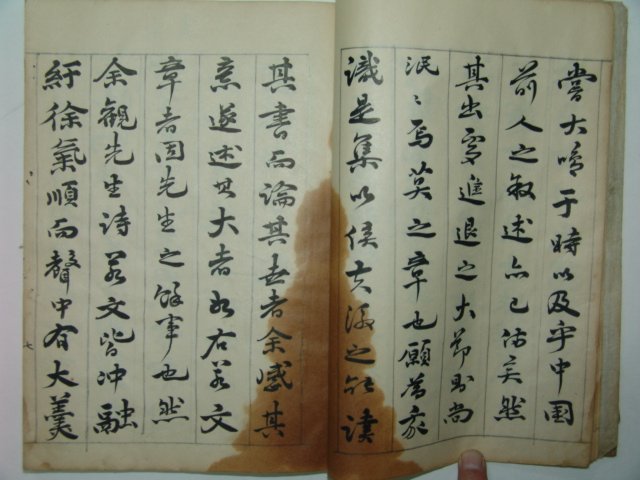 嘗大鳴于時以及乎中国
前人之叙述亦已備矣然
其出處進退之大節則尚
泯〻焉莫之章也願為我
識是集以俟百源之能讀
其書而論其世者余感其
意遂述其大者如右若文
章者固先生之餘事也然
余觀先生詩若文皆冲融
紆徐氣順而聲中有大羹
七